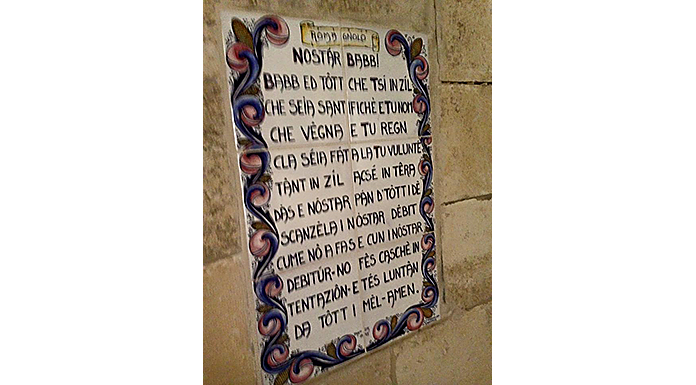 ROMAGNOLO
NOSTÁR BABBÍ
BABB ED TÓTT CHE TSÍ IN ZÍL
CHE SEÍA SANTIFICHÈ E TU NOM
CHE VÈGNA E TU REGN
CLA SÉIA FÁTA LA TU VULUNTÈ
TÀNT IN ZÍL ACSÉ IN TÈRA
DÀS E NÓSTAR PÁN D'TÓTTI DÈ
SCANZÈLA I NÓSTAR DÉBIT
CUME NÒ A FAS E CUN I NÓSTAR
DEBITÚR-NO FÈS CASCHÈ IN
TENTAZIÓN-E TÉS LUNTÀN
DA TÓTT I MÈL-AMEN.